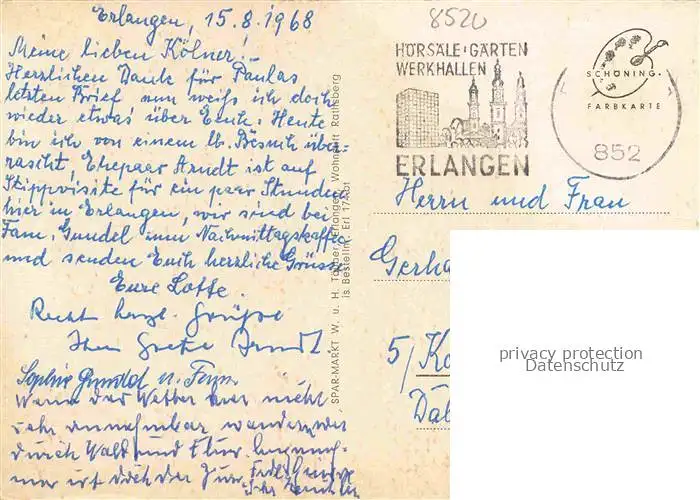 Erlangen, 15.8.1968
Meine lieben Kölner!
Herzlichen Dank für Paulas
letzten Brief nun weiß ich doch
wieder etwas über Euch. Heute
bin ich von einem lb. Besuch über-
rascht, Ehepaar Arndt ist auf
Stippvisite für ein paar Stunden
hier in Erlangen, wir sind bei
Fam. Gundel zum Nachmittagskaffee
und senden Euch herzliche Grüsse
Eure Lotte.
Recht herzl. Grüße
Ihre Grete Arndt
Sophie Gundel u. Fam.
Wenn das Wetter nicht
sehr annehmbar wandern wir
durch Wald und Flur
ist doch der
SPAR-MARKT W. u. H. Erlangen, Wohnstift Rathsberg
Bestellnr. Erl
8520
HÖRSÄLE·GÄRTEN
WERKHALLEN
ERLANGEN
SCHÖNING
FARBKARTE
852
Herrn und Frau
Gerha
5/Kö
privacy protection
Datenschutz